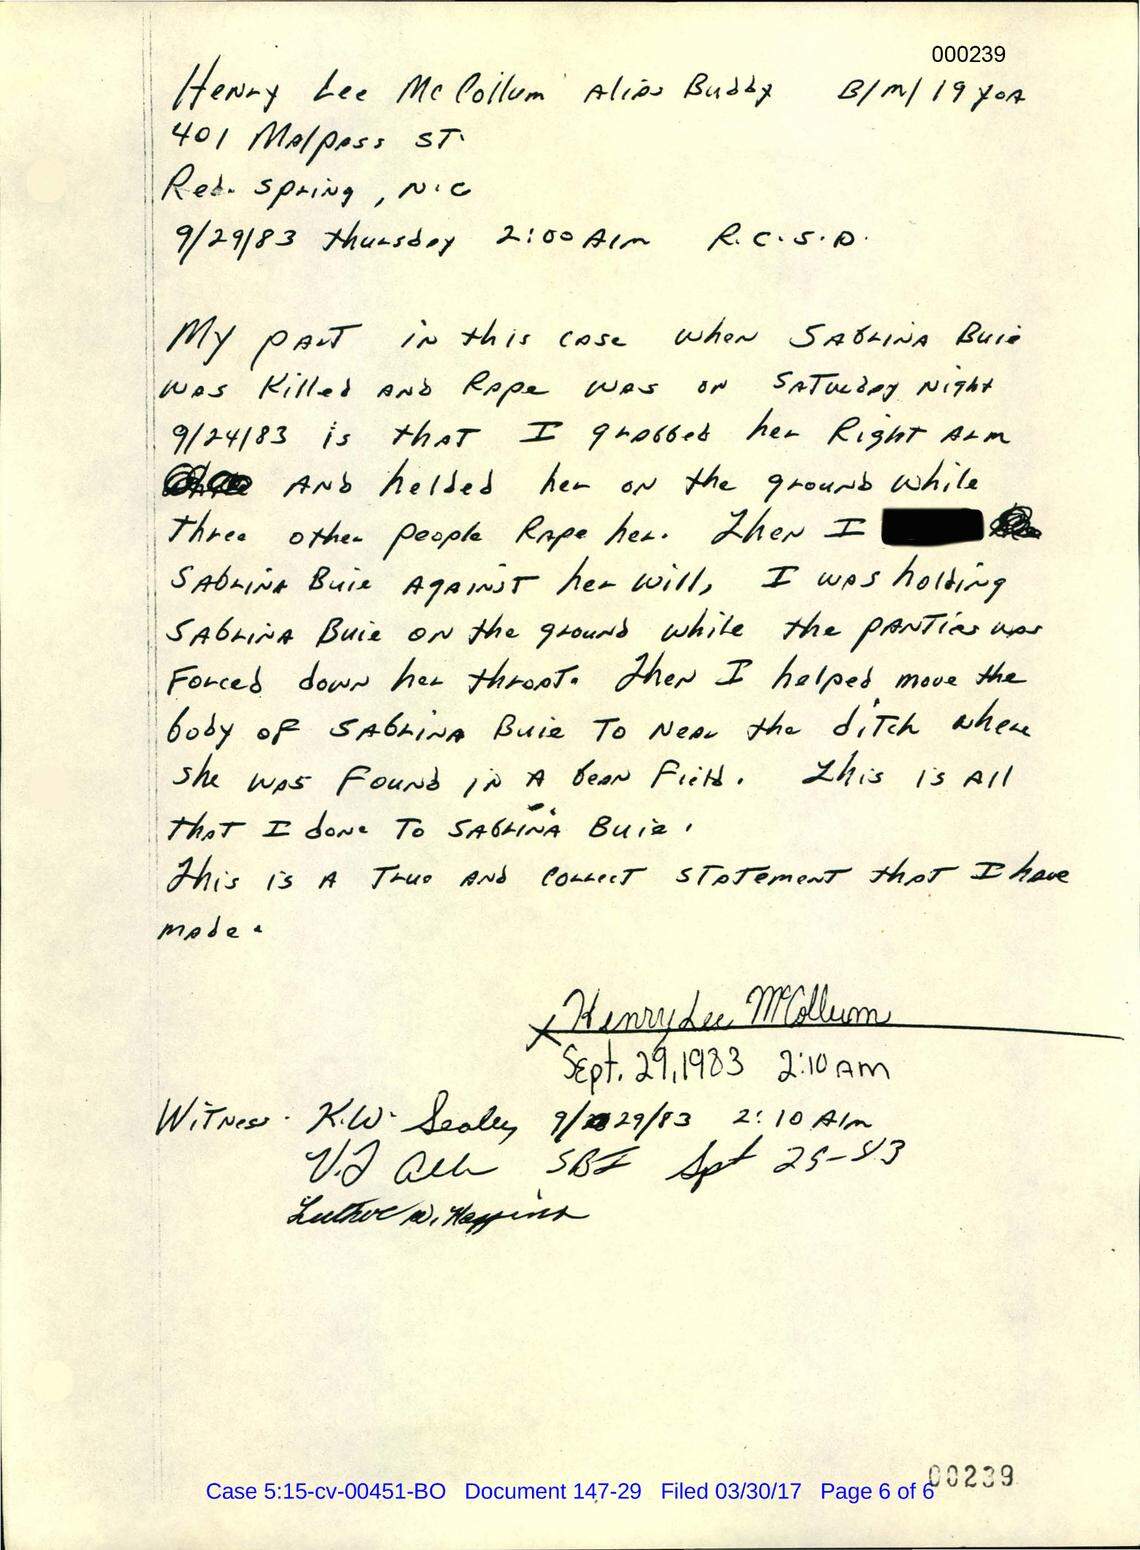 000239
Henry Lee McCollum Alias Buddy B/M/19 YOA
401 Malpass ST.
Red. Spring, N.C
9/29/83 thursday 2:00 AM R.C.S.D.
My part in this case when Sabrina Buie
was Killed and Rape was on Saturday night
9/24/83 is that I grabbed her Right Arm
and helded her on the ground while
three other people Rape her. Then I
Sabrina Buie against her will, I was holding
Sabrina Buie on the ground while the panties was
Forced down her throat. Then I helped move the
body of Sabrina Buie To Near the ditch where
she was Found in A bean Field. This is All
that I done To Sabrina Buie.
This is A True and correct statement that I have
made.
X Henry Lee McCollum
Sept. 29, 1983 2:10 AM
Witness. K.W. Sealey 9/29/83 2:10 AM
SBI Spt 29-83
Luther W. Haggins
00239
Case 5:15-cv-00451-BO Document 147-29 Filed 03/30/17 Page 6 of 6